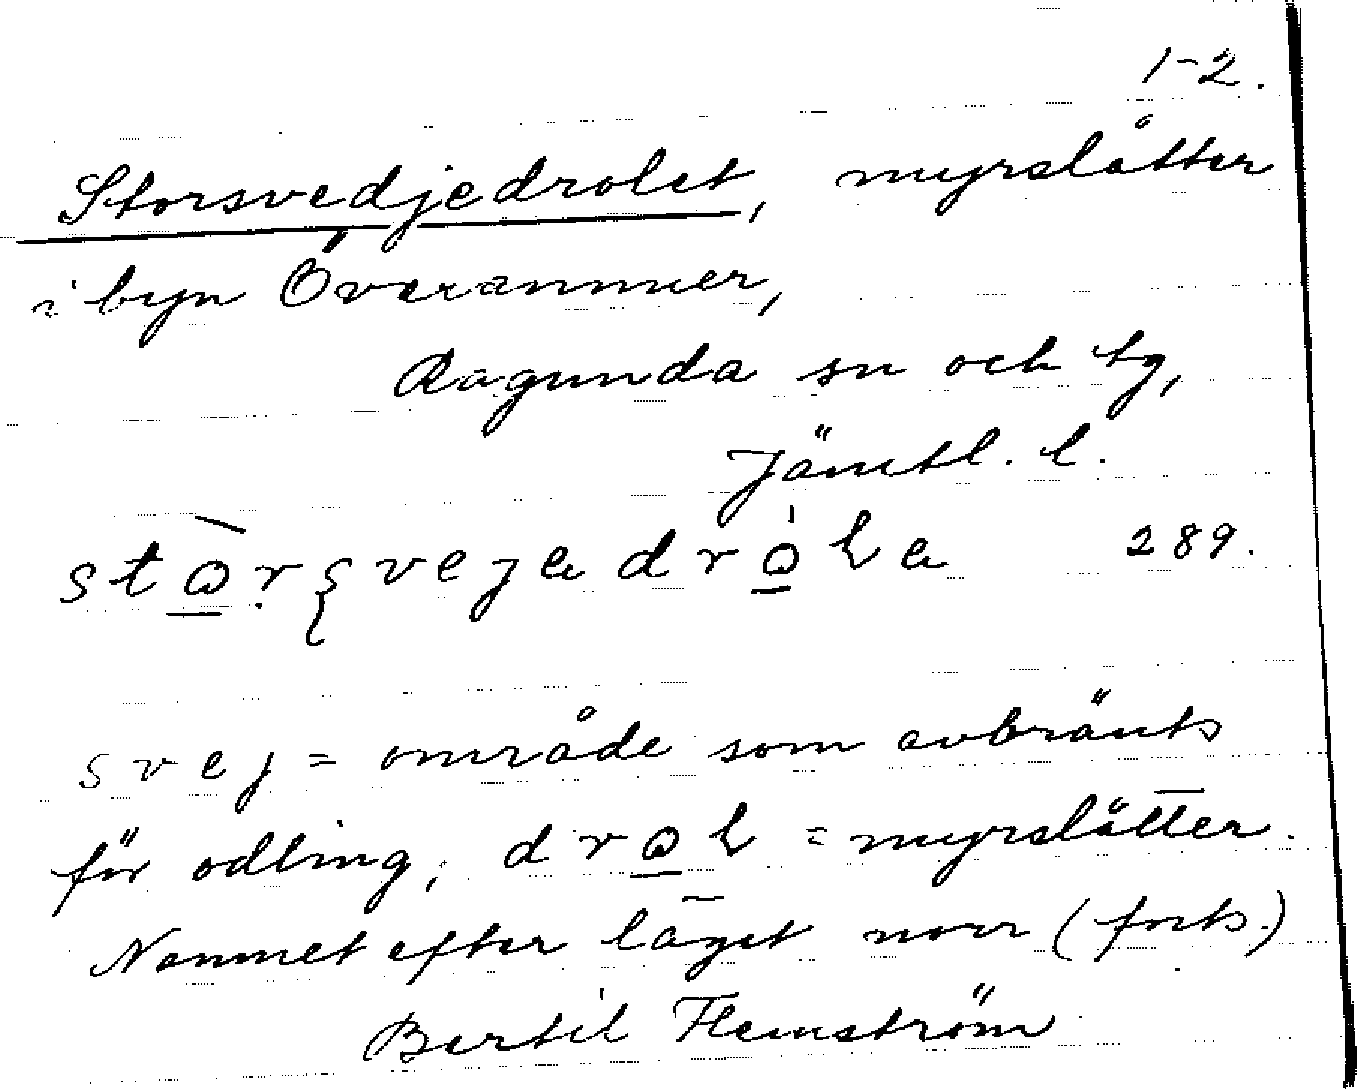 1-2.
Storsvedjedrolet, myrslåtter
i byn Överammer,
Ragunda sn och tg,
Jämtl. l.
289.
svej = område som avbränts
för odling; = myrslåtter.
Namnet efter läget norr (forts.)
Bertil Flemström